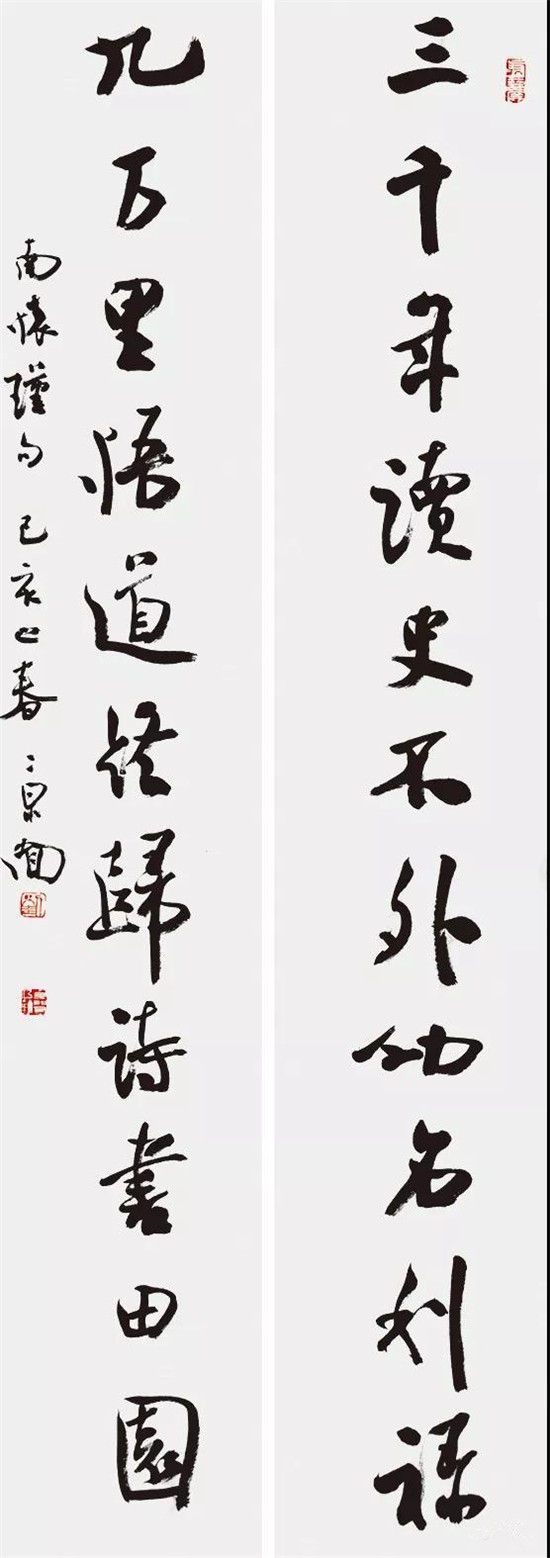 三千年讀史不外功名利祿
九万里悟道終歸詩書田園
南懷瑾句 己亥之春